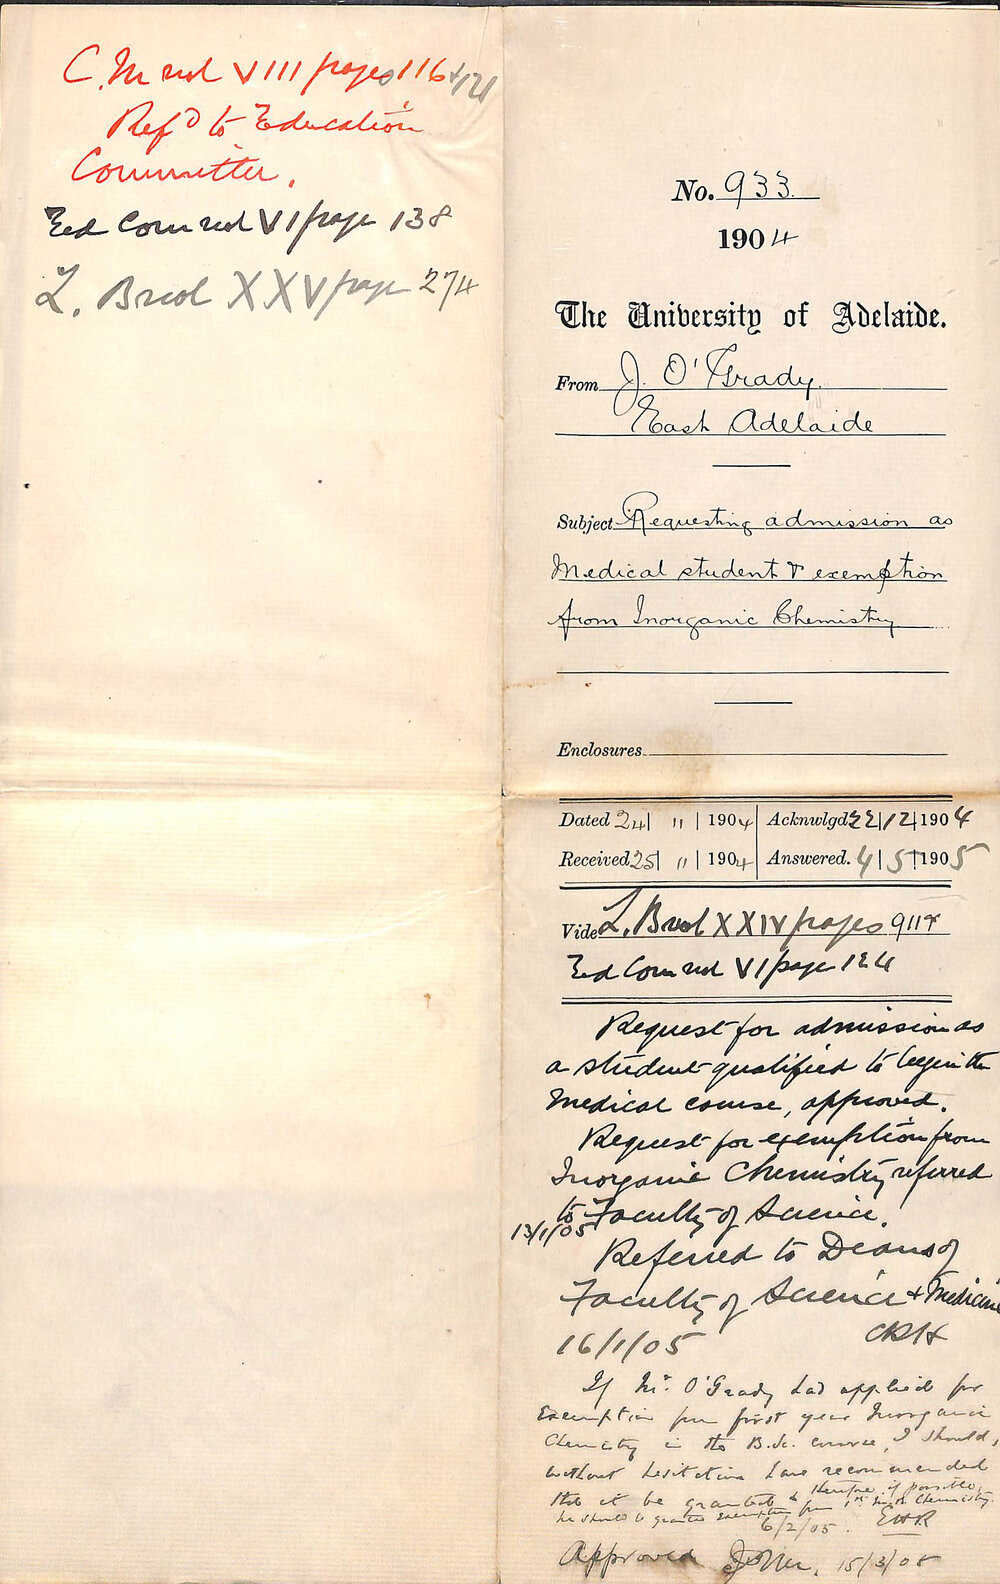 C.M vol VIII pages 116 & 121
Ref'd to Education
Committee.
Ed Com vol VI page 138
L. B vol XXV page 274
No. 933
1904
The University of Adelaide.
From J. O'Grady.
East Adelaide
Subject Requesting admission as
Medical student & exemption
from Inorganic Chemistry
Enclosures
Dated 24 | 11 | 1904 Acknwlgd 22 | 12 | 1904
Received 25 | 11 | 1904 Answered. 4 | 5 | 1905
Vide L. B vol XXIV pages 911
Ed Com vol VI page 124
Request for admission as
a student qualified to begin the
Medical course, approved.
Request for exemption from
Inorganic Chemistry referred
to Faculty of Science.
13/1/05
Referred to Deans of
Faculty of Science & Medicine
16/1/05 CRH
If Mr. O'Grady had applied for
Exemption from first year Inorganic
Chemistry in the B.Sc. course, I should,
without hesitation have recommended
that it be granted & therefore if possible,
he should be granted exemption from 1st year Chemistry.
6/2/05. EHR
Approved 15/3/05